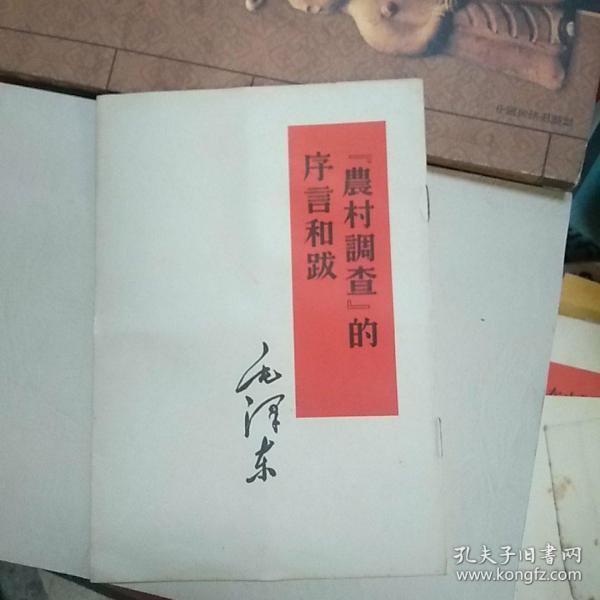 『農村調查』的
序言和跋
毛泽东
孔夫子旧书网
www.kongfz.com